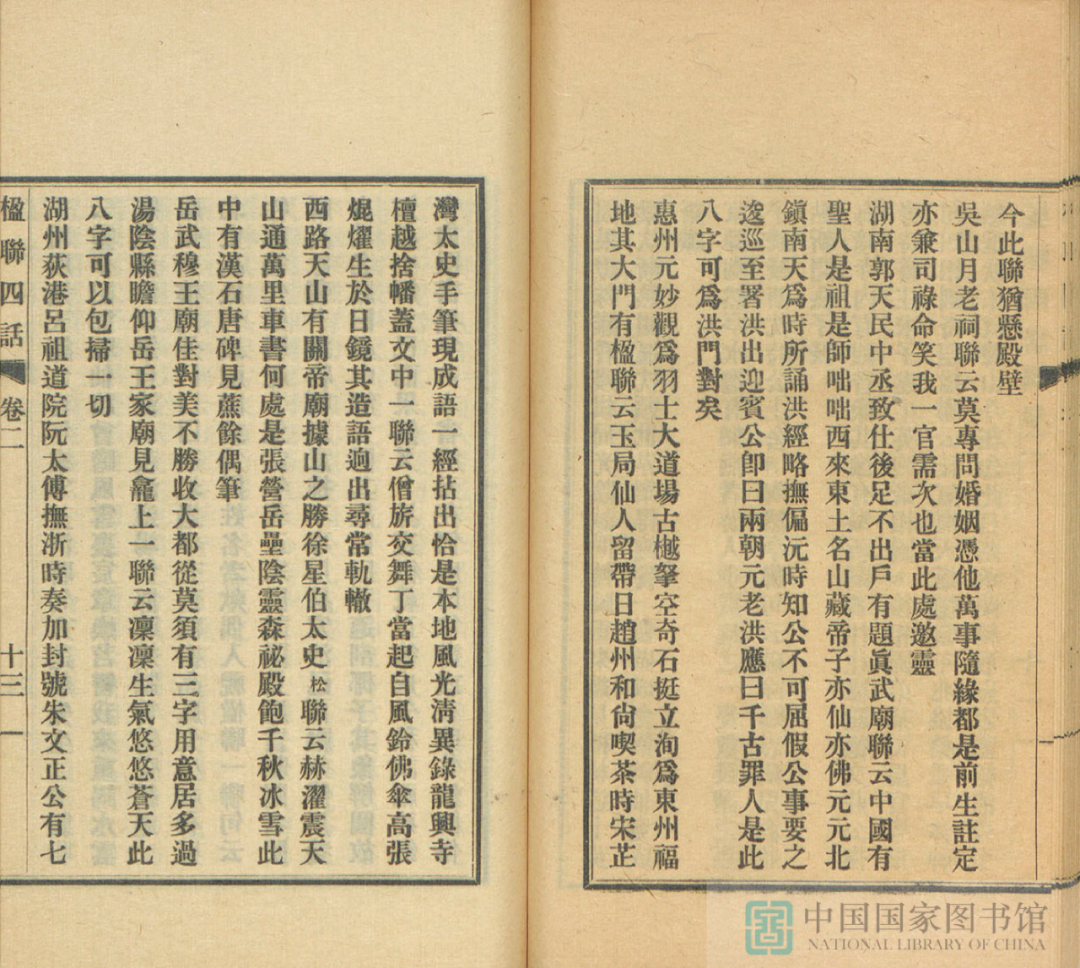 今此聯猶懸殿壁
吳山月老祠聯云莫專問婚姻憑他萬事隨緣都是前生註定
亦兼司祿命笑我一官需次也當此處邀靈
湖南郭天民中丞致仕後足不出戶有題眞武廟聯云中國有
聖人是祖是師咄咄西來東土名山藏帝子亦仙亦佛元元北
鎭南天爲時所誦洪經略撫偏沅時知公不可屈假公事要之
逡巡至署洪出迎賓公卽曰兩朝元老洪應曰千古罪人是此
八字可爲洪門對矣
惠州元妙觀爲羽士大道場古樾拏空奇石挺立洵爲東州福
地其大門有楹聯云玉局仙人留帶日趙州和尙喫茶時宋芷
灣太史手筆現成語一經拈出恰是本地風光淸異錄龍興寺
檀越捨幡蓋文中一聯云僧旂交舞丁當起自風鈴佛傘高張
焜燿生於日鏡其造語逈出尋常軌轍
西路天山有關帝廟據山之勝徐星伯太史松聯云赫濯震天
山通萬里車書何處是張營岳壘陰靈森祕殿飽千秋冰雪此
中有漢石唐碑見蕉餘偶筆
岳武穆王廟佳對美不勝收大都從莫須有三字用意居多過
湯陰縣瞻仰岳王家廟見龕上一聯云凜凜生氣悠悠蒼天此
八字可以包掃一切
湖州荻港呂祖道院阮太傅撫浙時奏加封號朱文正公有七
楹聯四話 卷二 十三
中国国家图书馆
NATIONAL LIBRARY OF CHINA